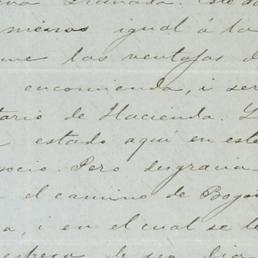 Granada.
menos igual á la
me las ventajas d
encomienda, i ser
tario de Hacienda.
estado aqui en este
ocio. Pero desgracia
el camino de Bogo
a, i en el cual se le
de un dia